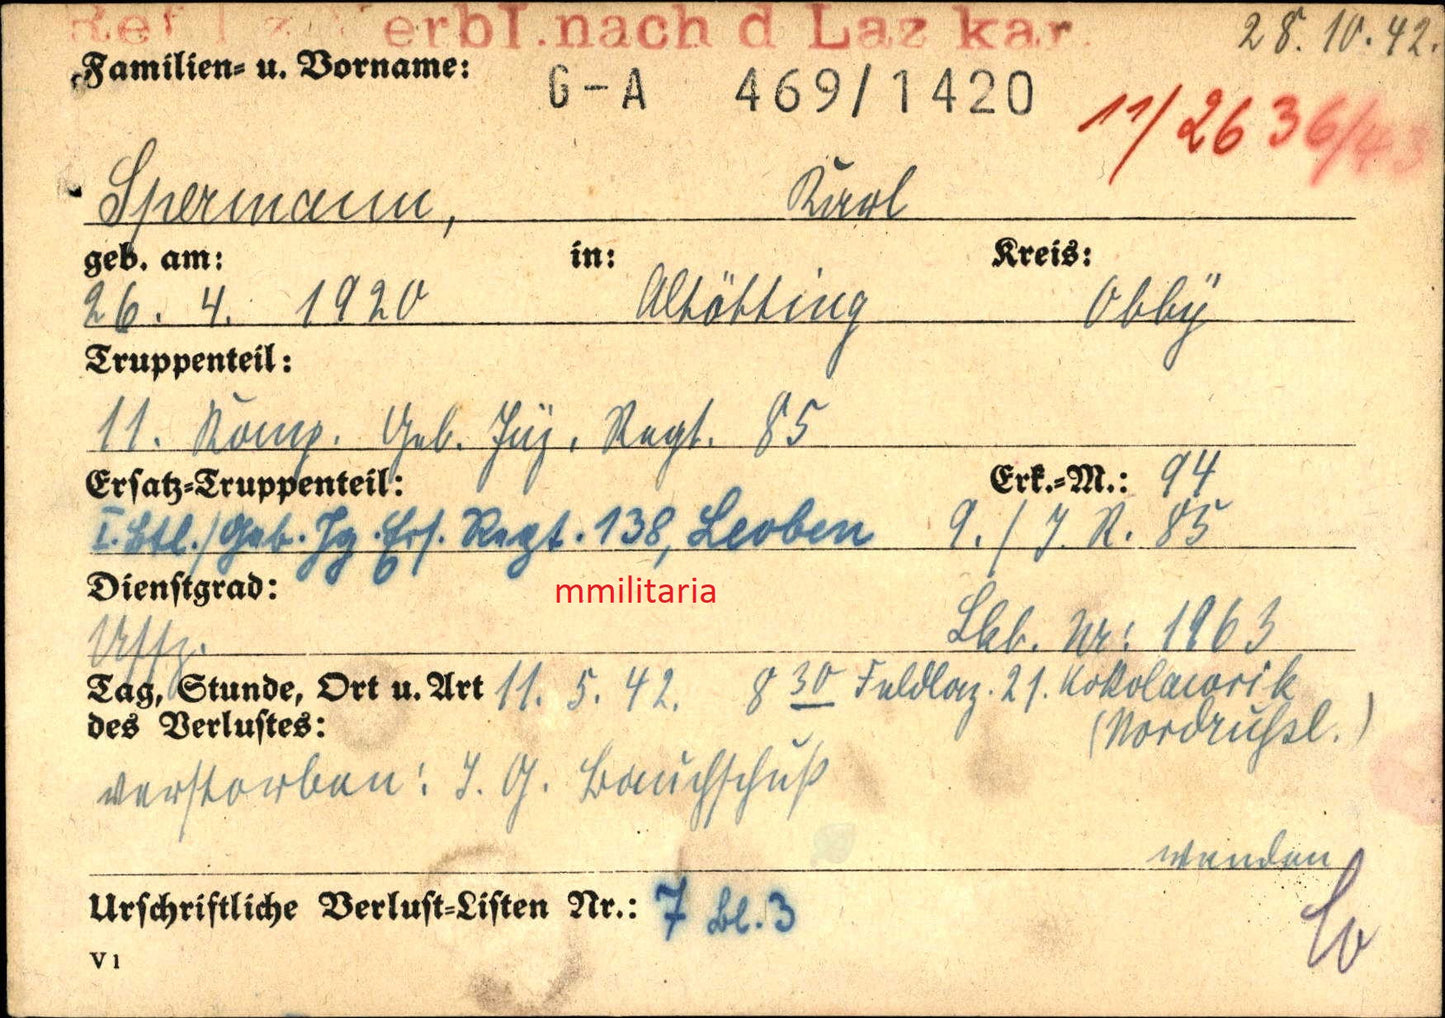 erbl. nach d Laz kar.
28. 10. 42.
Familien- u. Vorname:
G-A 469/1420
11/2636/43
Spermann, Karl
geb. am: in: Kreis:
26. 4. 1920 Altötting Obby
Truppenteil:
11. Komp. Geb. Jäg. Regt. 85
Ersatz-Truppenteil: Erk.-M.: 94
I. Btl./Geb. Jg. Ers. Regt. 138, Leoben 9./J. R. 85
Dienstgrad:
mmilitaria
Uffz. Lkb. Nr: 1963
Tag, Stunde, Ort u. Art 11. 5. 42. 8 30 Feldlaz. 21. Kokolaworik
des Verlustes: (Nordrußl.)
verstorben: I. G. Bauchschuß
wenden
Urschriftliche Verlust-Listen Nr.: 7 Bl. 3
V 1